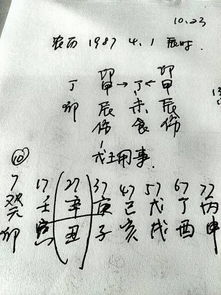 10.23
农历 1987 4.1 辰时
卯 卯
丁 甲→丁←甲
卯 辰 未 辰
伤 食 伤
戊土用事.
7 17 27 37 47 57 67 77
癸 壬 辛 庚 己 戊 丁 丙
卯 寅 丑 子 亥 戌 酉 申